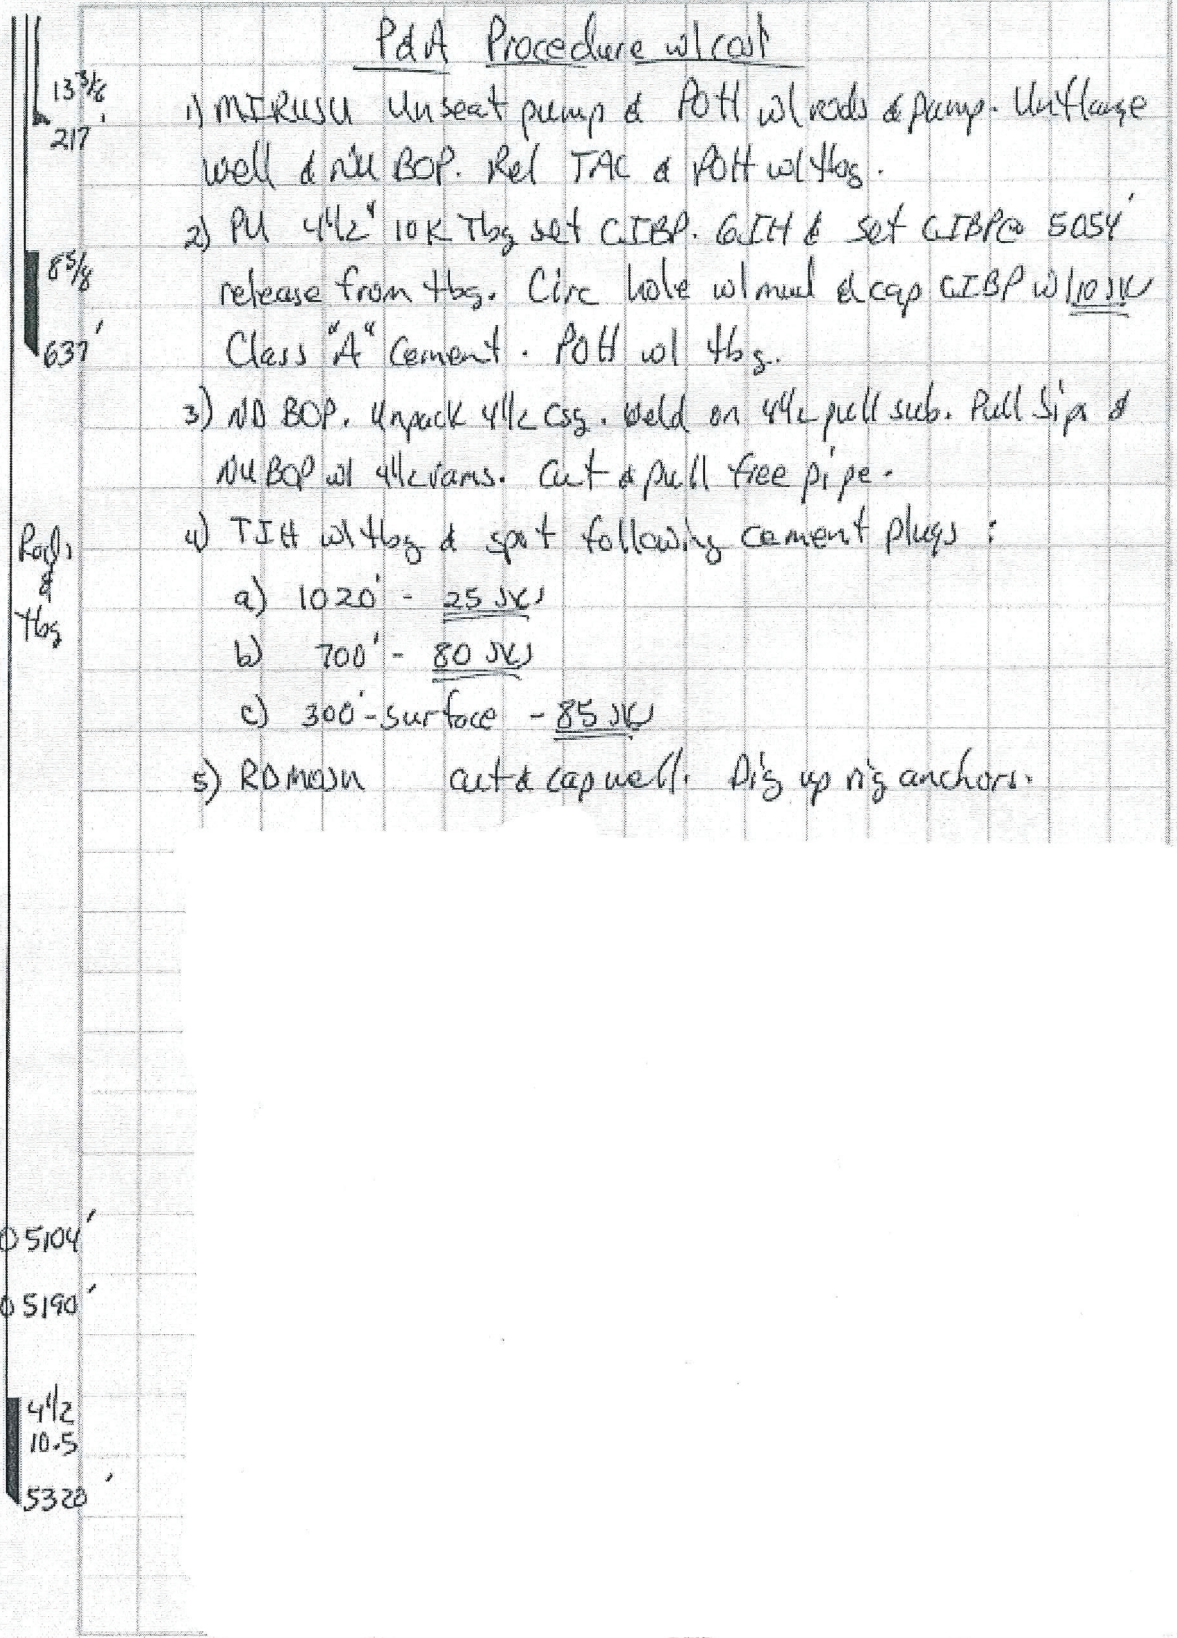 P&A Procedure w/cost
13 3/8
217'
1) MIRUSU Unseat pump & POH w/ rods & pump. Unflange
well & NU BOP. Rel TAC & POH w/ tbg.
2) PU 4 1/2" 10K Tbg set CIBP. GIH & set CIBP@ 5054'
8 5/8
release from tbg. Circ hole w/ mud & cap CIBP w/ 10 sx
637'
Class "A" Cement. POH w/ tbg.
3) ND BOP. Unpack 4 1/2 csg. Weld on 4 1/2 pull sub. Pull slips &
NU BOP w/ 4 1/2 rams. Cut & pull free pipe.
Rods
&
tbg
4) TIH w/ tbg & spot following cement plugs:
a) 1020' - 25 sks
b) 700' - 80 sks
c) 300'-surface - 85 sks
5) RDMOSU cut & cap well. Dig up rig anchors.
5104'
5190'
4 1/2
10.5
5320'